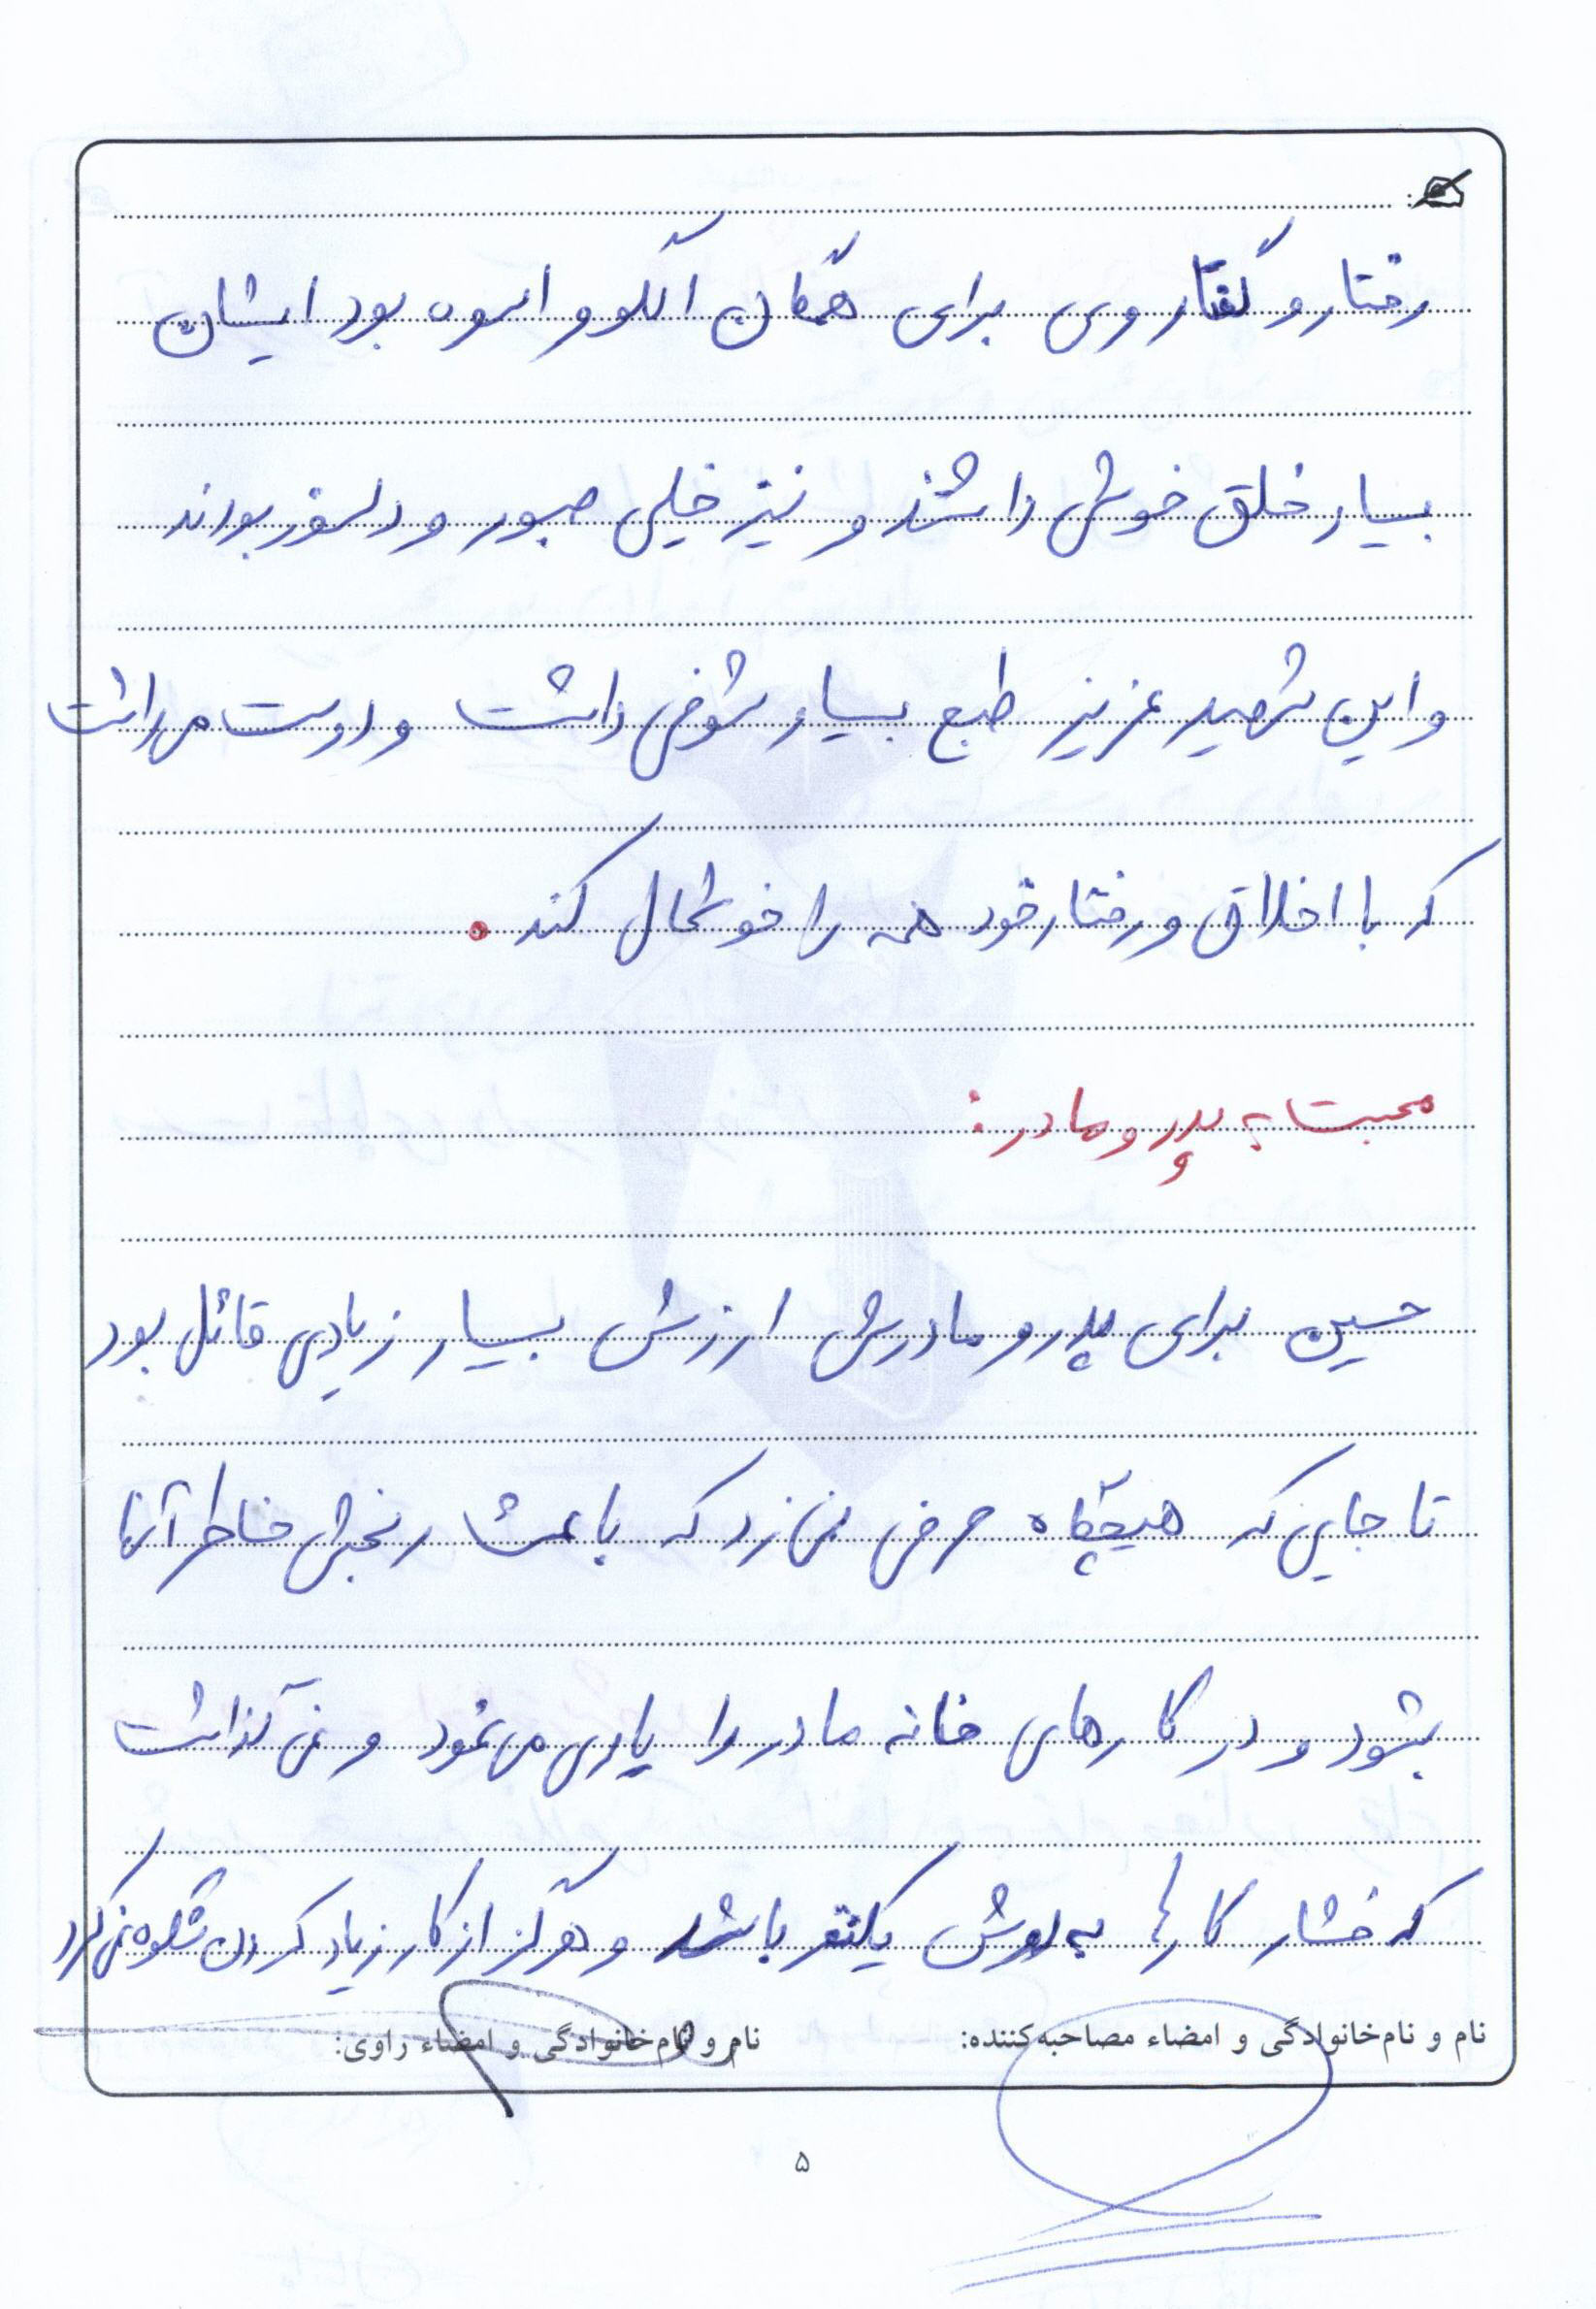 رفتار و گفتار وی برای همگان الگو و اسوه بود ایشان
بسیار خلق خوش داشتند و نیز خیلی صبور و دلسوز بودند
و این شهید عزیز طبع بسیار شوخی داشت و دوست می داشت
که با اخلاق و رفتار خود همه را خوشحال کند .
محبت به پدر و مادر :
حسین برای پدر و مادرش ارزش بسیار زیادی قائل بود
تا جایی که هیچگاه حرفی نمی زد که باعث رنجش خاطر آنها
بشود و در کارهای خانه مادر را یاری می نمود و نمی گذاشت
که فشار کارها به دوش یکنفر باشد و هرگز از کار زیاد کردن شکوه نمی کرد
نام و نام‌خانوادگی و امضاء مصاحبه‌کننده: نام و نام‌خانوادگی و امضاء راوی:
۵